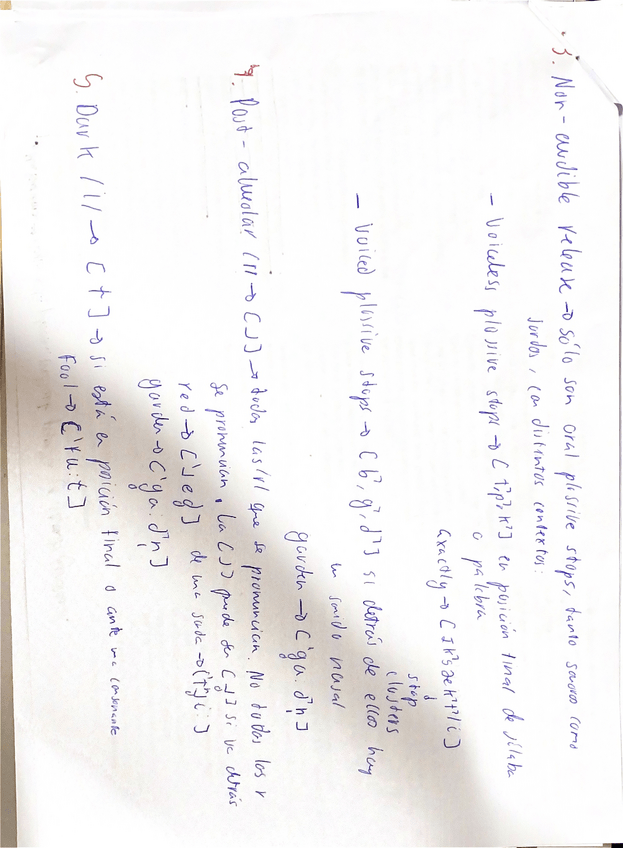 3. Non-audible release → Sólo son oral plosive stops, tanto sonoros como
sordos, con distintos contextos:
- Voiceless plosive stops → [t̚, p̚, k̚] en posición final de sílaba
o palabra
Exactly → [ɪk̚sækt̚li]
stop
clusters
- Voiced plosive stops → [b̚, g̚, d̚] si detrás de ellos hay
un sonido nasal
garden → ['gɑ:d̚n̩]
4. Post-alveolar /r/ → [ɹ] → todas las /r/ que se pronuncian. No todas las r
se pronuncian. La [ɹ] puede ser [ɹ̥] si va detrás
de una sorda →
red → ['ɹed]
garden → ['gɑ:d̚n̩]
5. Dark /l/ → [ɫ] → si está en posición final o ante una consonante
Fool → ['fu:ɫ]